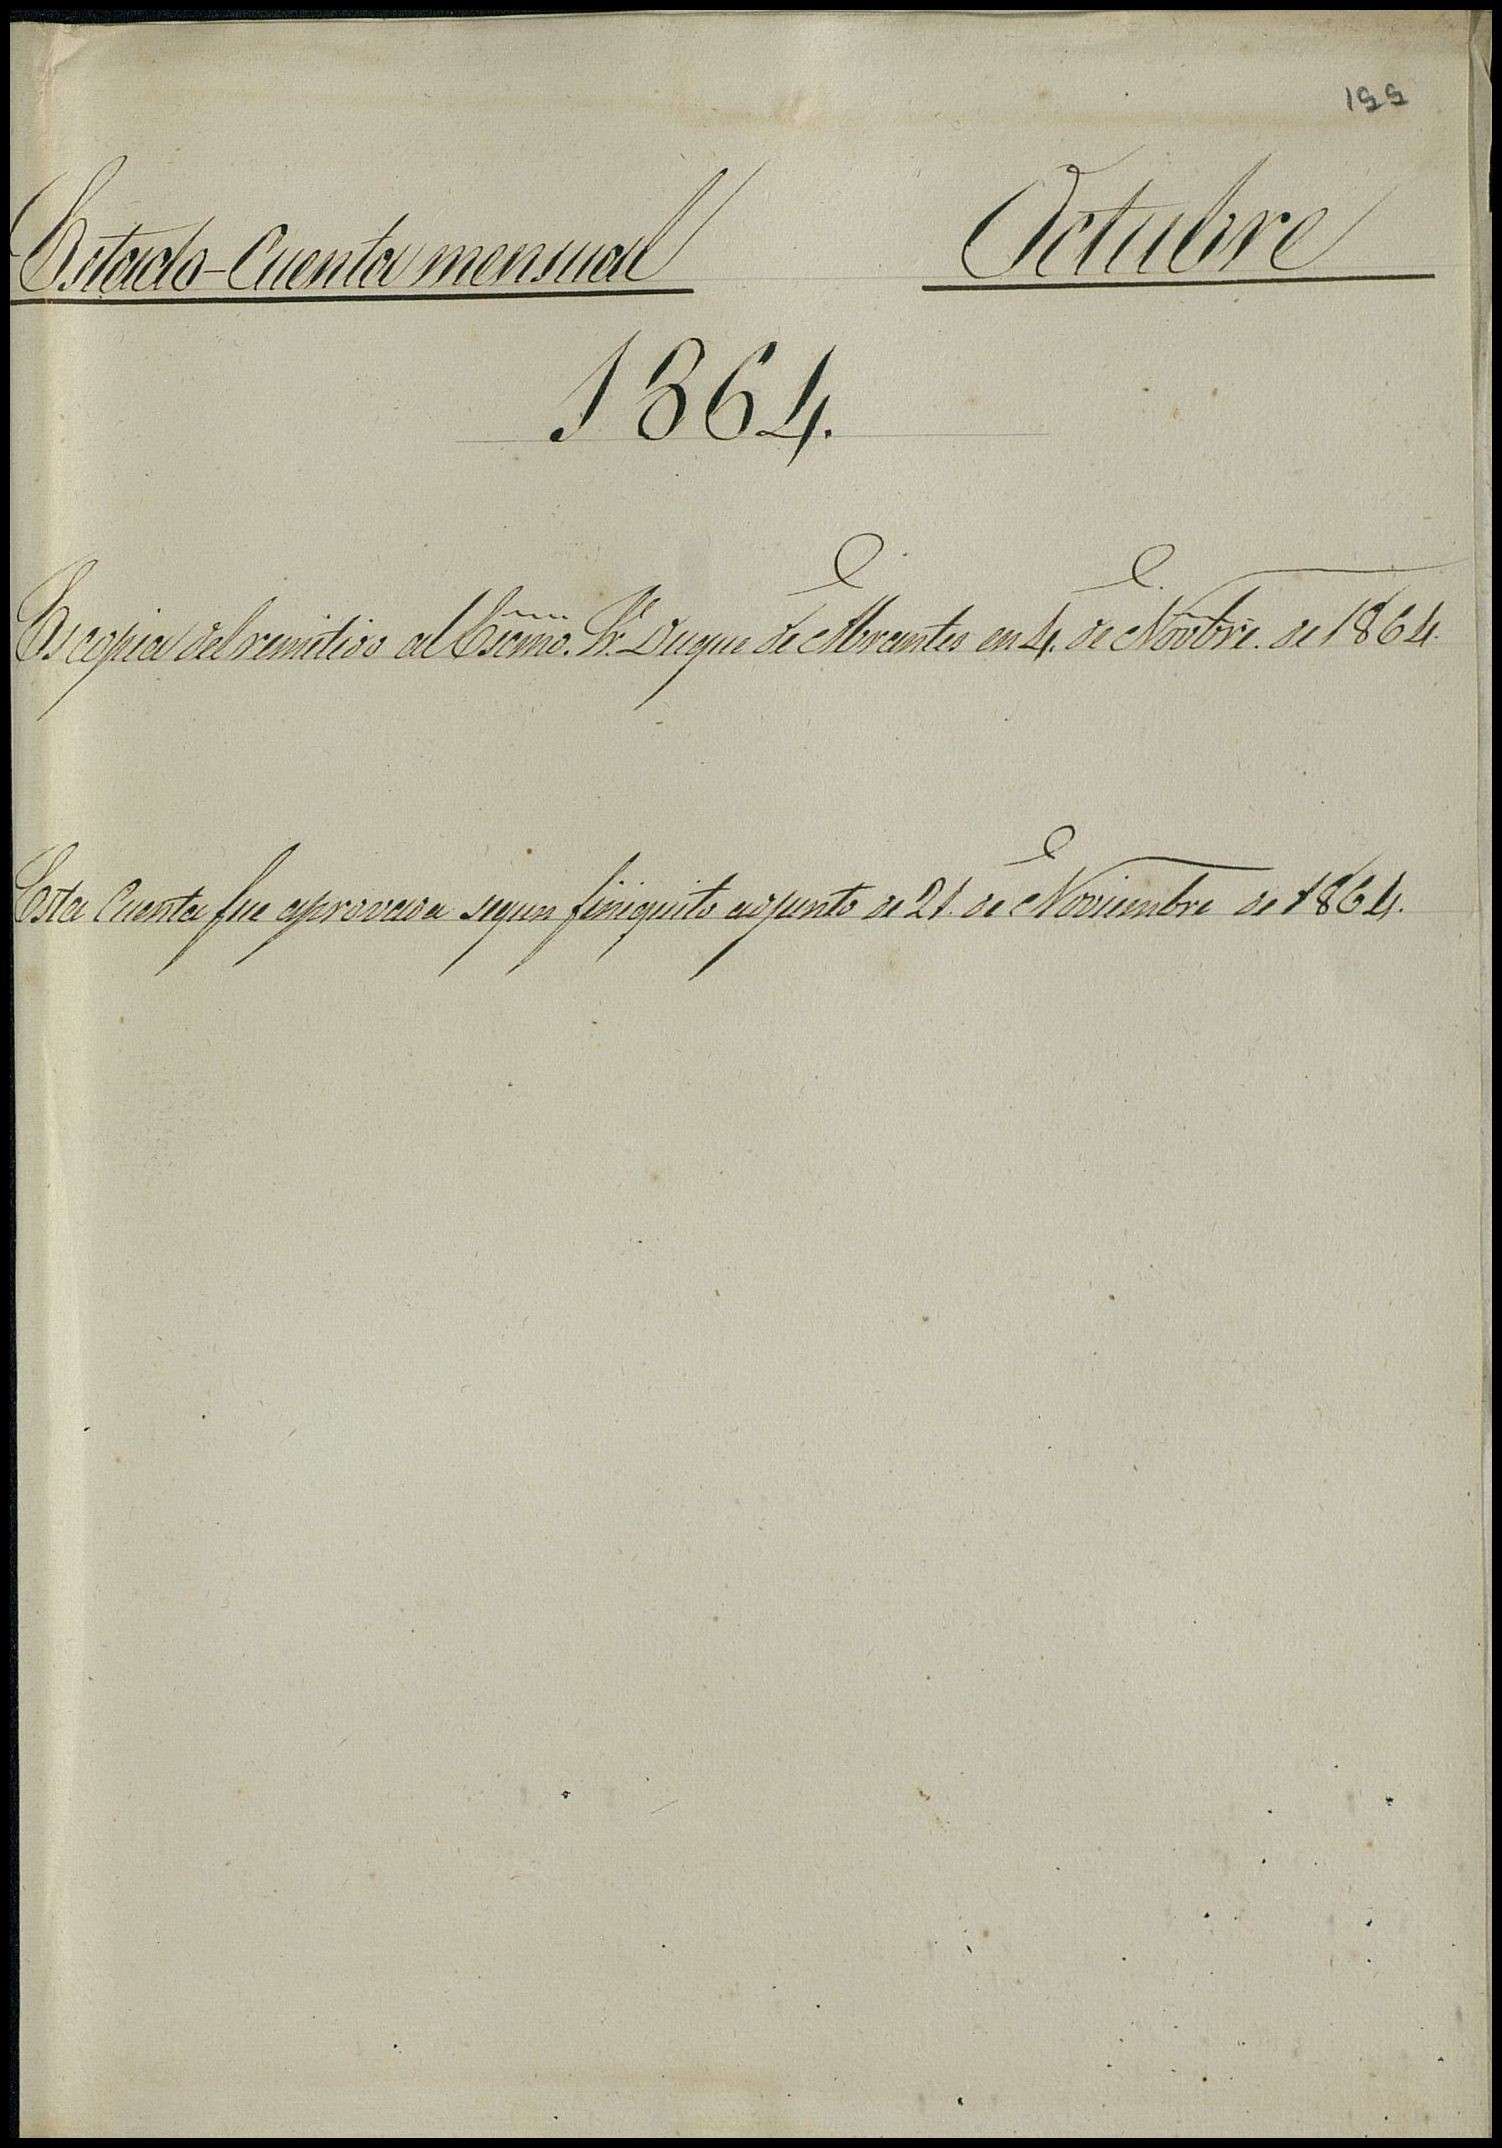 155
Estado-Cuenta mensual Octubre
1864.
Es copia del remitido al Escmo. Sr. Duque de Abrantes en 4. de Novbre. de 1864.
Esta Cuenta fue aprovada segun finiquito adjunto de 21. de Noviembre de 1864.